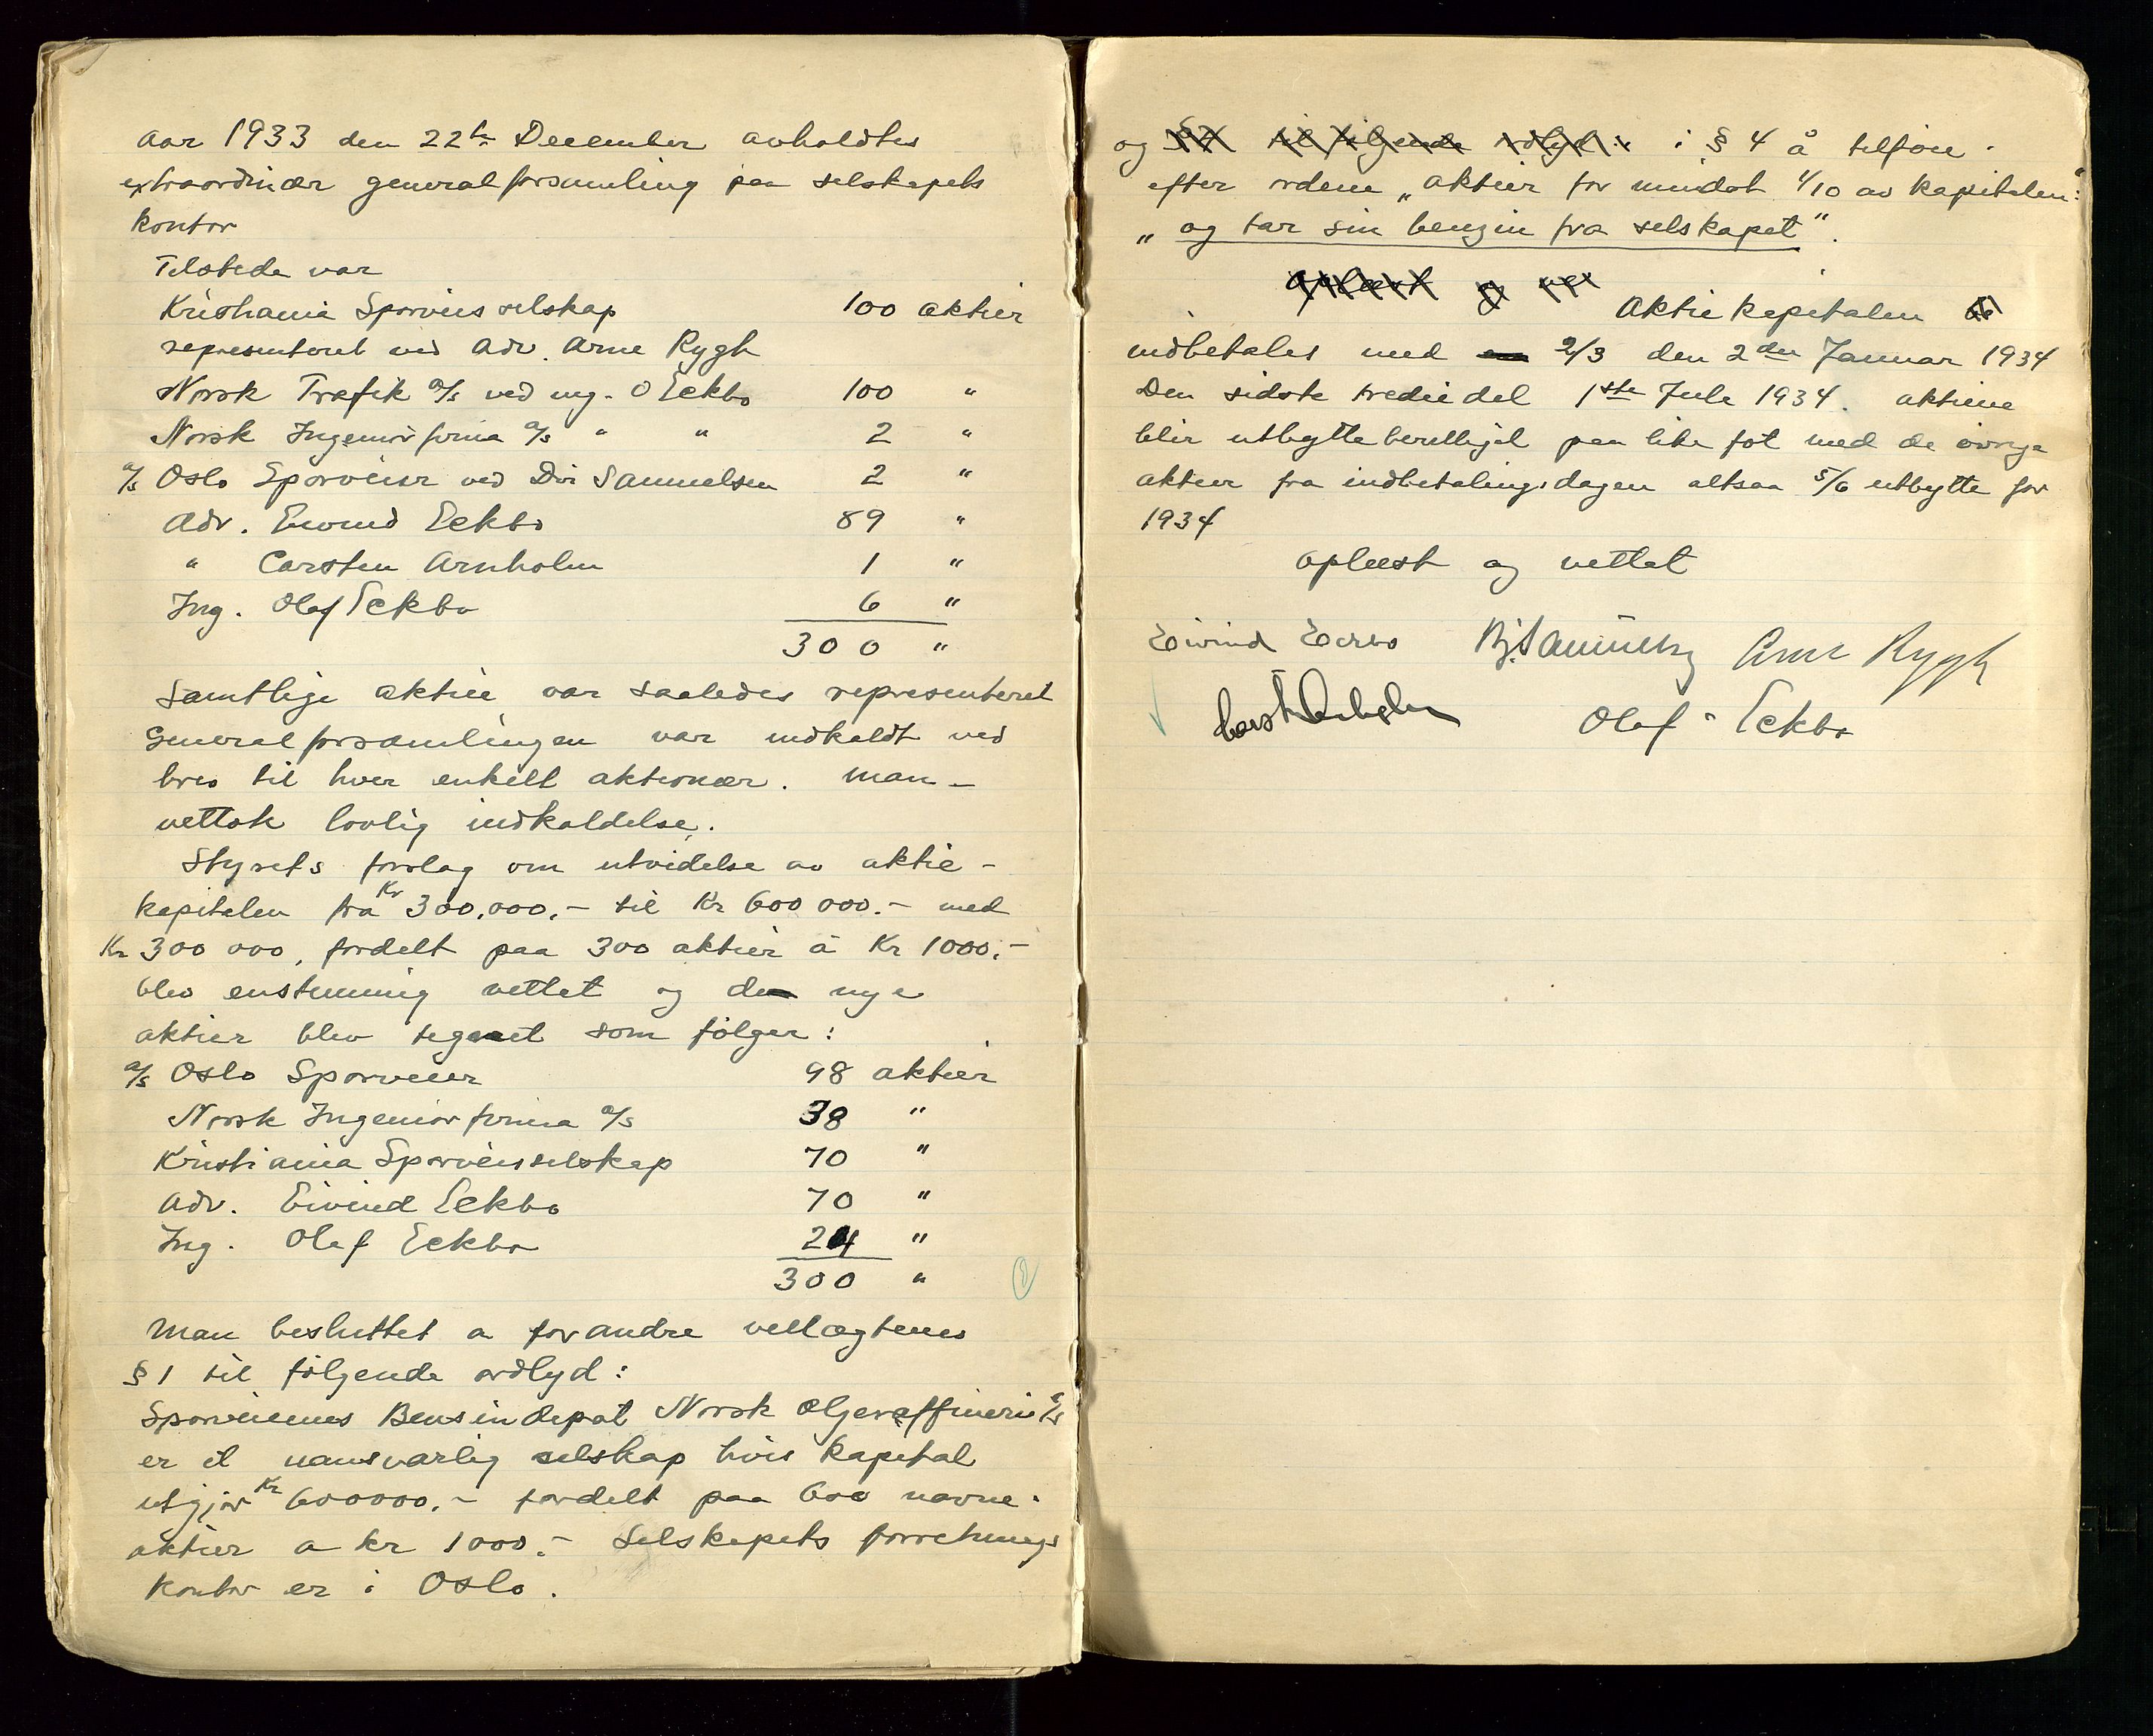 Aar 1933 den 22de December avholdtes
extraordinær generalforsamling paa selskapets
kontor
Tilstede var
Kristiania Sporveisselskap 100 aktier
representeret ved Adv. Arne Rygh
Norsk Trafik A/s ved ing. O Eckbo 100 "
Norsk Ingeniørfirma A/s " " 2 "
A/s Oslo Sporveier ved Dir Samuelsen 2 "
Adv. Eivind Eckbo 89 "
" Carsten Arnholm 1 "
Ing. Olaf Eckbo 6 "
300 "
Samtlige aktier var saaledes representeret
Generalforsamlingen var indkaldt ved
brev til hver enkelt aktionær. Man
vettok lovlig indkaldelse.
Styrets forslag om utvidelse av aktie-
kapitalen fra Kr 300.000.- til Kr 600 000.- med
Kr 300 000, fordelt paa 300 aktier á Kr 1000.-
blev enstemmig vettat og de nye
aktier blev tegnet som følger:
A/s Oslo Sporveier 98 aktier
Norsk Ingeniørfirma A/s 38 "
Kristiania Sporveisselskap 70 "
Adv. Eivind Eckbo 70 "
Ing. Olaf Eckbo 24 "
300 "
Man besluttet a forandre vedtægtenes
§ 1 til følgende ordlyd:
Sporveienes Bensindepot Norsk Oljeraffineri A/s
er et uansvarlig selskap hvis kapital
utgjør Kr 600000.- fordelt paa 600 navne-
aktier a kr 1000.- Selskapets forretnings
kontor er i Oslo.
og §4 til følgende ordlyd: i § 4 å tilføie
efter ordene „aktier for mindst 1/10 av kapitalen":
„og tar sin benzin fra selskapet".
Oplæst og vet Aktiekapitalen
indbetales med 2/3 den 2den Januar 1934
Den sidste trediedel 1ste Juli 1934. aktiene
blir utbytteberettiget paa like fot med de øvrige
aktier fra indbetalingsdagen altsaa 5/6 utbytte for
1934
Oplæst og vettat
Eivind Eckbo Bj. Samuelsen Arne Rygh
Carst Arnholm Olaf Eckbo